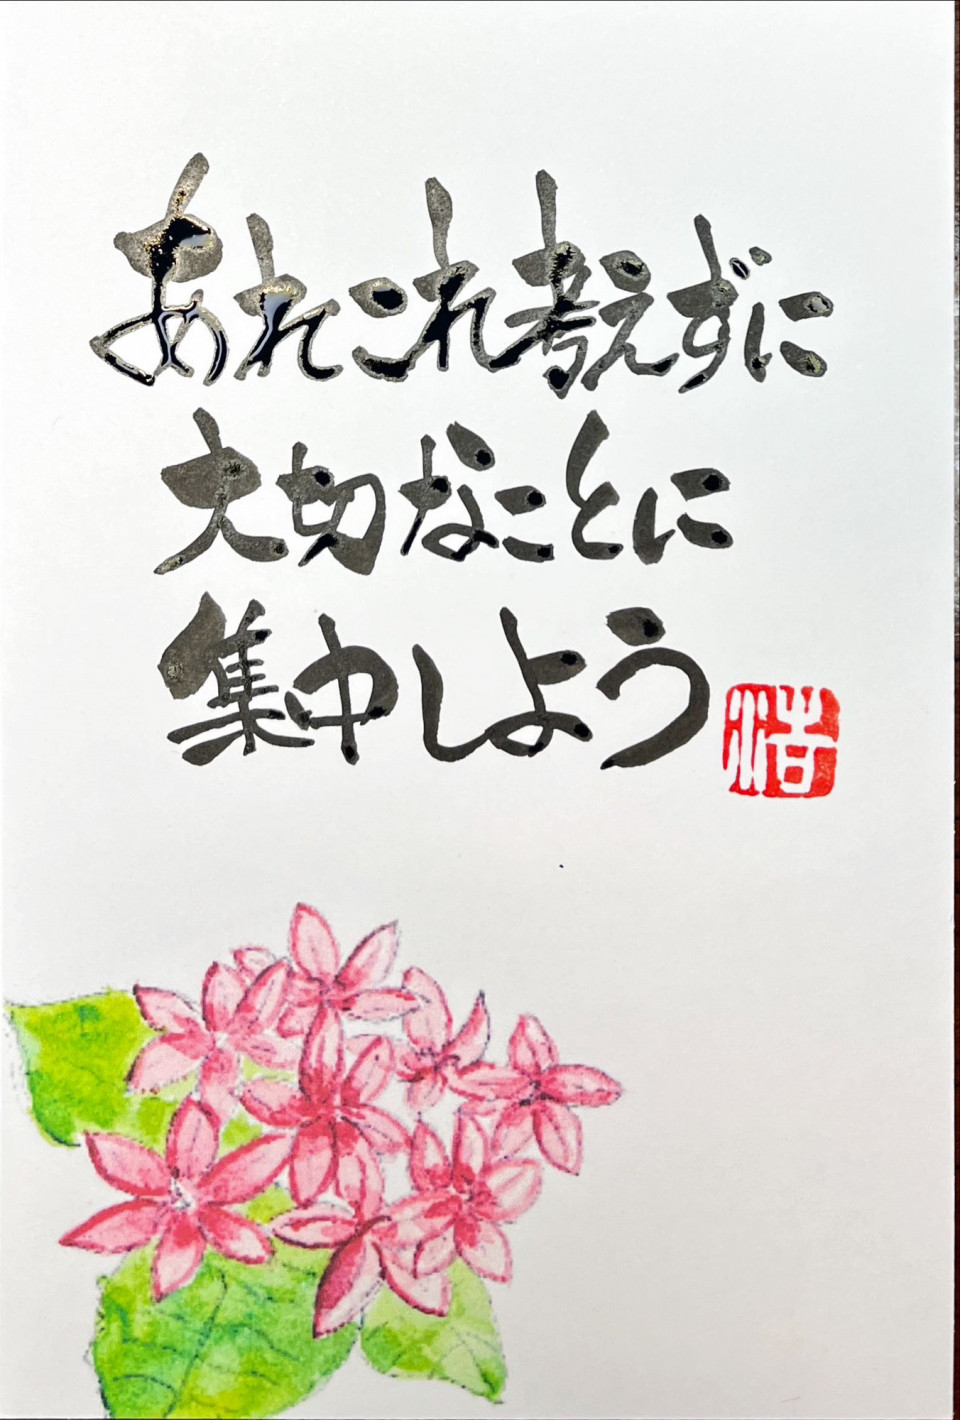 あれこれ考えずに
大切なことに
集中しよう
浩